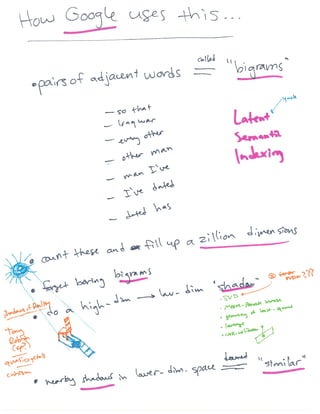 How Google uses this...
• pairs of adjacent words called "bigrams"
— so that
— Iraq war
— every other
— other man
— man I've
— I've dated
— dated has
Latent
Semantic
Indexing
• count these and fill up a zillion dimensions
• forget boring bigrams
• do a high-dim → low-dim "shadow"
- SVD
- Moore-Penrose inverse
- geometry of least-squares
- leverage
Tony
Robbin
• nearby shadows in lower-dim. space deemed "similar"